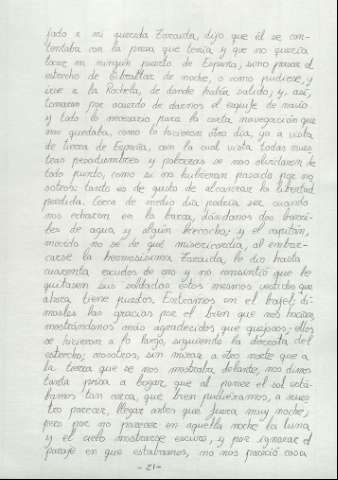 jado a mi querida Zoraida, dijo que él se con-
tentaba con la presa que tenía y que no quería
tocar en ningún puerto de España, sino pasar el
estrecho de Gibraltar de noche, o como pudiese, y
irse a la Rochela, de donde había salido; y, así,
tomaron por acuerdo de darnos el esquife de su navío
y todo lo necesario para la corta navegación que
nos quedaba, como lo hicieron otro día, ya a vista
de tierra de España, con la cual vista todas nues-
tras pesadumbres y pobrezas se nos olvidaron de
todo punto, como si no hubieran pasado por no-
sotros: tanto es de gusto de alcanzar la libertad
perdida. Cerca de medio día podría ser cuando
nos echaron en la barca, dándonos dos barri-
les de agua y algún bizcocho; y el capitán,
movido no sé de qué misericordia, al embar-
carse la hermosísima Zoraida, le dio hasta
cuarenta escudos de oro y no consintió que le
quitasen sus soldados estos mesmos vestidos que
ahora tiene puestos. Entramos en el bajel; di-
mosles las gracias por el bien que nos hacían,
mostrándonos más agradecidos que quejosos; ellos
se hicieron a lo largo, siguiendo la derrota del
estrecho; nosotros, sin mirar a otro norte que a
la tierra que se nos mostraba delante, nos dimos
tanta prisa a bogar que al poner el sol está-
bamos tan cerca, que bien pudiéramos, a nues-
tro parecer, llegar antes que fuera muy noche;
pero por no parecer en aquella noche la luna
y el cielo mostrarse escuro, y por ignorar el
paraje en que estábamos, no nos pareció cosa
-21-